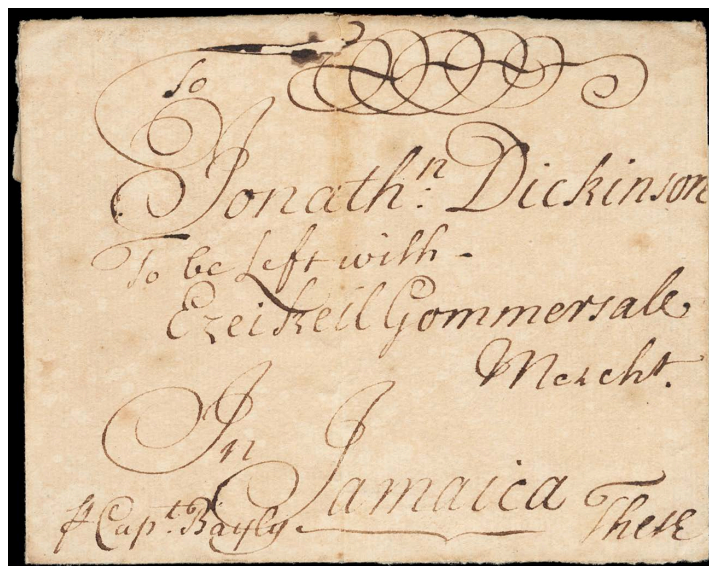 To
Jonathn: Dickinson
To be Left with -
Ezeikeil Gommersale
Mercht.
In Jamaica
⅌ Capt. Bayly These